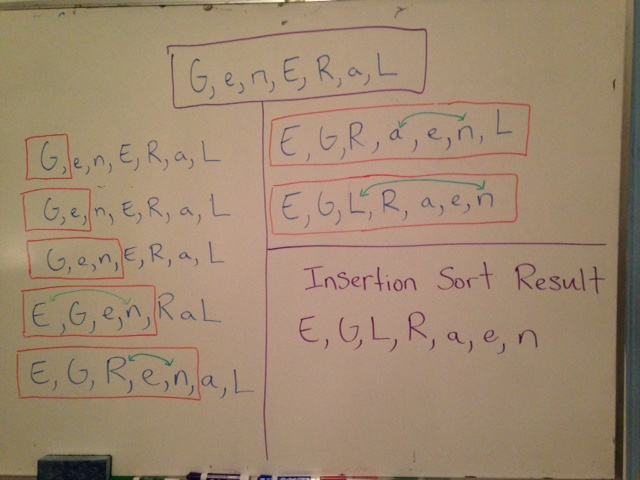 G, e, n, E, R, a, L
G, e, n, E, R, a, L
G, e, n, E, R, a, L
G, e, n, E, R, a, L
E, G, e, n, R a L
E, G, R, e, n, a, L
E, G, R, a, e, n, L
E, G, L, R, a, e, n
Insertion Sort Result
E, G, L, R, a, e, n